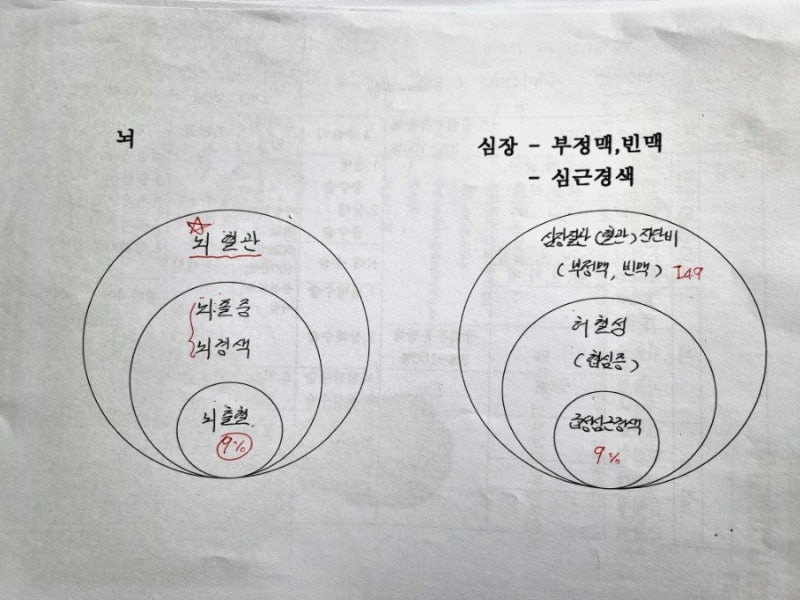 뇌
심장 - 부정맥,빈맥
- 심근경색
뇌혈관
뇌졸중
뇌경색
뇌출혈
9%
심장질환(혈관)진단비
(부정맥, 빈맥) I49
허혈성
(협심증)
급성심근경색
9%